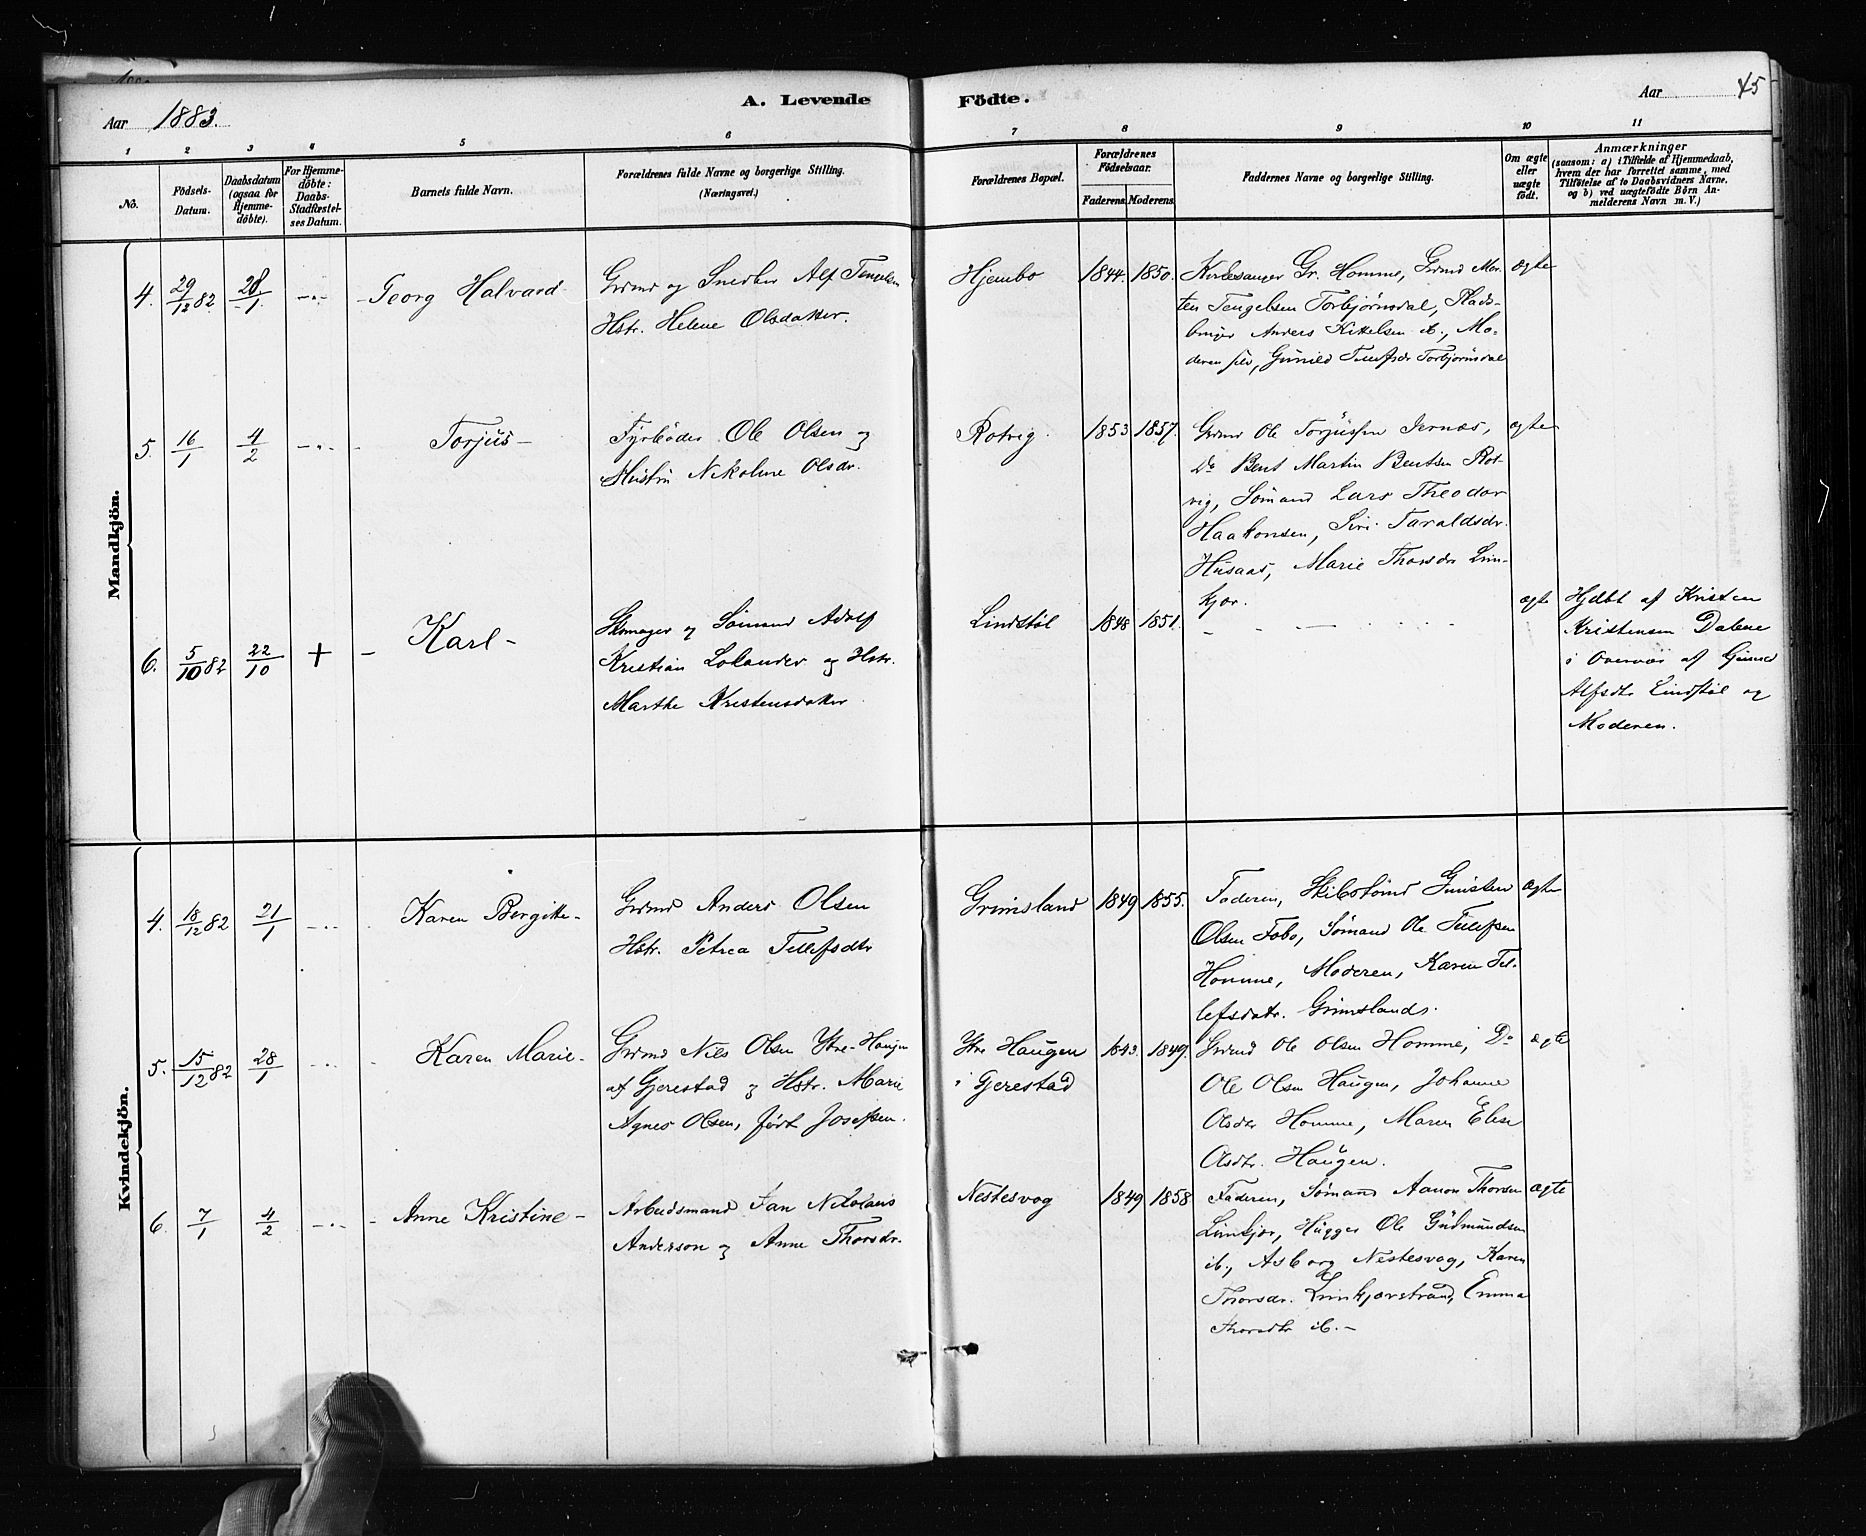 Aar 1883.
A. Levende Födte.
Aar 45
1 2 3 4 5 6 7 8 9 10 11
No.
Födsels-Datum.
Daabsdatum (ogsaa for Hjemmedöbte).
For Hjemmedöbte: Daabs-Stadfæstelses Datum.
Barnets fulde Navn.
Forældrenes fulde Navne og borgerlige Stilling. (Næringsvei.)
Forældrenes Bopæl.
Forældrenes Födselsaar.
Faderens. Moderens.
Faddernes Navne og borgerlige Stilling.
Om ægte eller uægte födt.
Anmærkninger
(saasom: a) i Tilfælde af Hjemmedaab, hvem der har forrettet samme, med Tilföielse af to Daabsvidners Navne, og b) ved uægtefödte Börn Anmelderens Navn m. V.)
Mandkjön.
4. 29/12 82 28/1 -"- Georg Halvard
Grdmd og Snedker Alf Tengelsen
Hstr. Helene Olsdatter.
Hjembo 1844. 1850.
Kirkesanger Gr. Homme, Grdmd Mor-
ten Tengelsen Torbjørnsdal, Plads-
bruger Anders Kittelsen ib., Mo-
deren selv, Gunild Tellefsdr Torbjørnsdal
ægte
5. 16/1 4/2 -"- Torjus -
Fyrbøder Ole Olsen og
Hustru Nikoline Olsdr.
Rotvig. 1853 1857.
Grdmd Ole Torjussen Jernæs,
Do Bent Martin Bentsen Rot-
vig, Sømand Lars Theodor
Haakonsen, Siri Taraldsdr.
Husaas, Marie Thorsdr Lim-
kjær.
ægte
6. 5/10 82 22/10 + - Karl -
Skomager og Sømand Adolf
Kristian Lolander og Hstr.
Marthe Kristensdatter
Lindstøl 1848 1851.
- - - - - -
ægte
Hjdbt af Kristen
Kristensen Dalene
i Overvær af Gunild
Alfsdtr Lindstøl og
Moderen.
Kvindekjön.
4. 18/12 82 21/1 -"- Karen Bergitte -
Grdmd Anders Olsen
Hstr. Petrea Tellefsdtr
Grimsland 1849 1855.
Faderen, Skibstømd Gunsten
Olsen Fobo, Sømand Ole Tellefsen
Homme, Moderen, Karen Tel-
lefsdatr. Grimsland.
ægte
5. 15/12 82 28/1 -"- Karen Marie -
Grdmd Niels Olsen Ytre-Haugen
af Gjerestad og Hstr. Marie
Agnes Olsen, født Josefsen.
Ytre Haugen
i Gjerestad
1843. 1849.
Grdmd Ole Olsen Homme, Do
Ole Olsen Haugen, Johanne
Olsdtr Homme, Maren Elise
Olsdtr. Haugen.
ægte
6. 7/1 4/2 -"- Anne Kristine -
Arbeidsmand Jan Nikolaus
Anderson og Anne Thorsdr.
Nestesvog 1849 1858
Faderen, Sømand Aanon Thorsen
Limkjær, Hugger Ole Gudmundsen
ib., Asborg Nestesvog, Karen
Thorsdr. Limkjærstrand, Emma
Thorsdtr ib. -
ægte